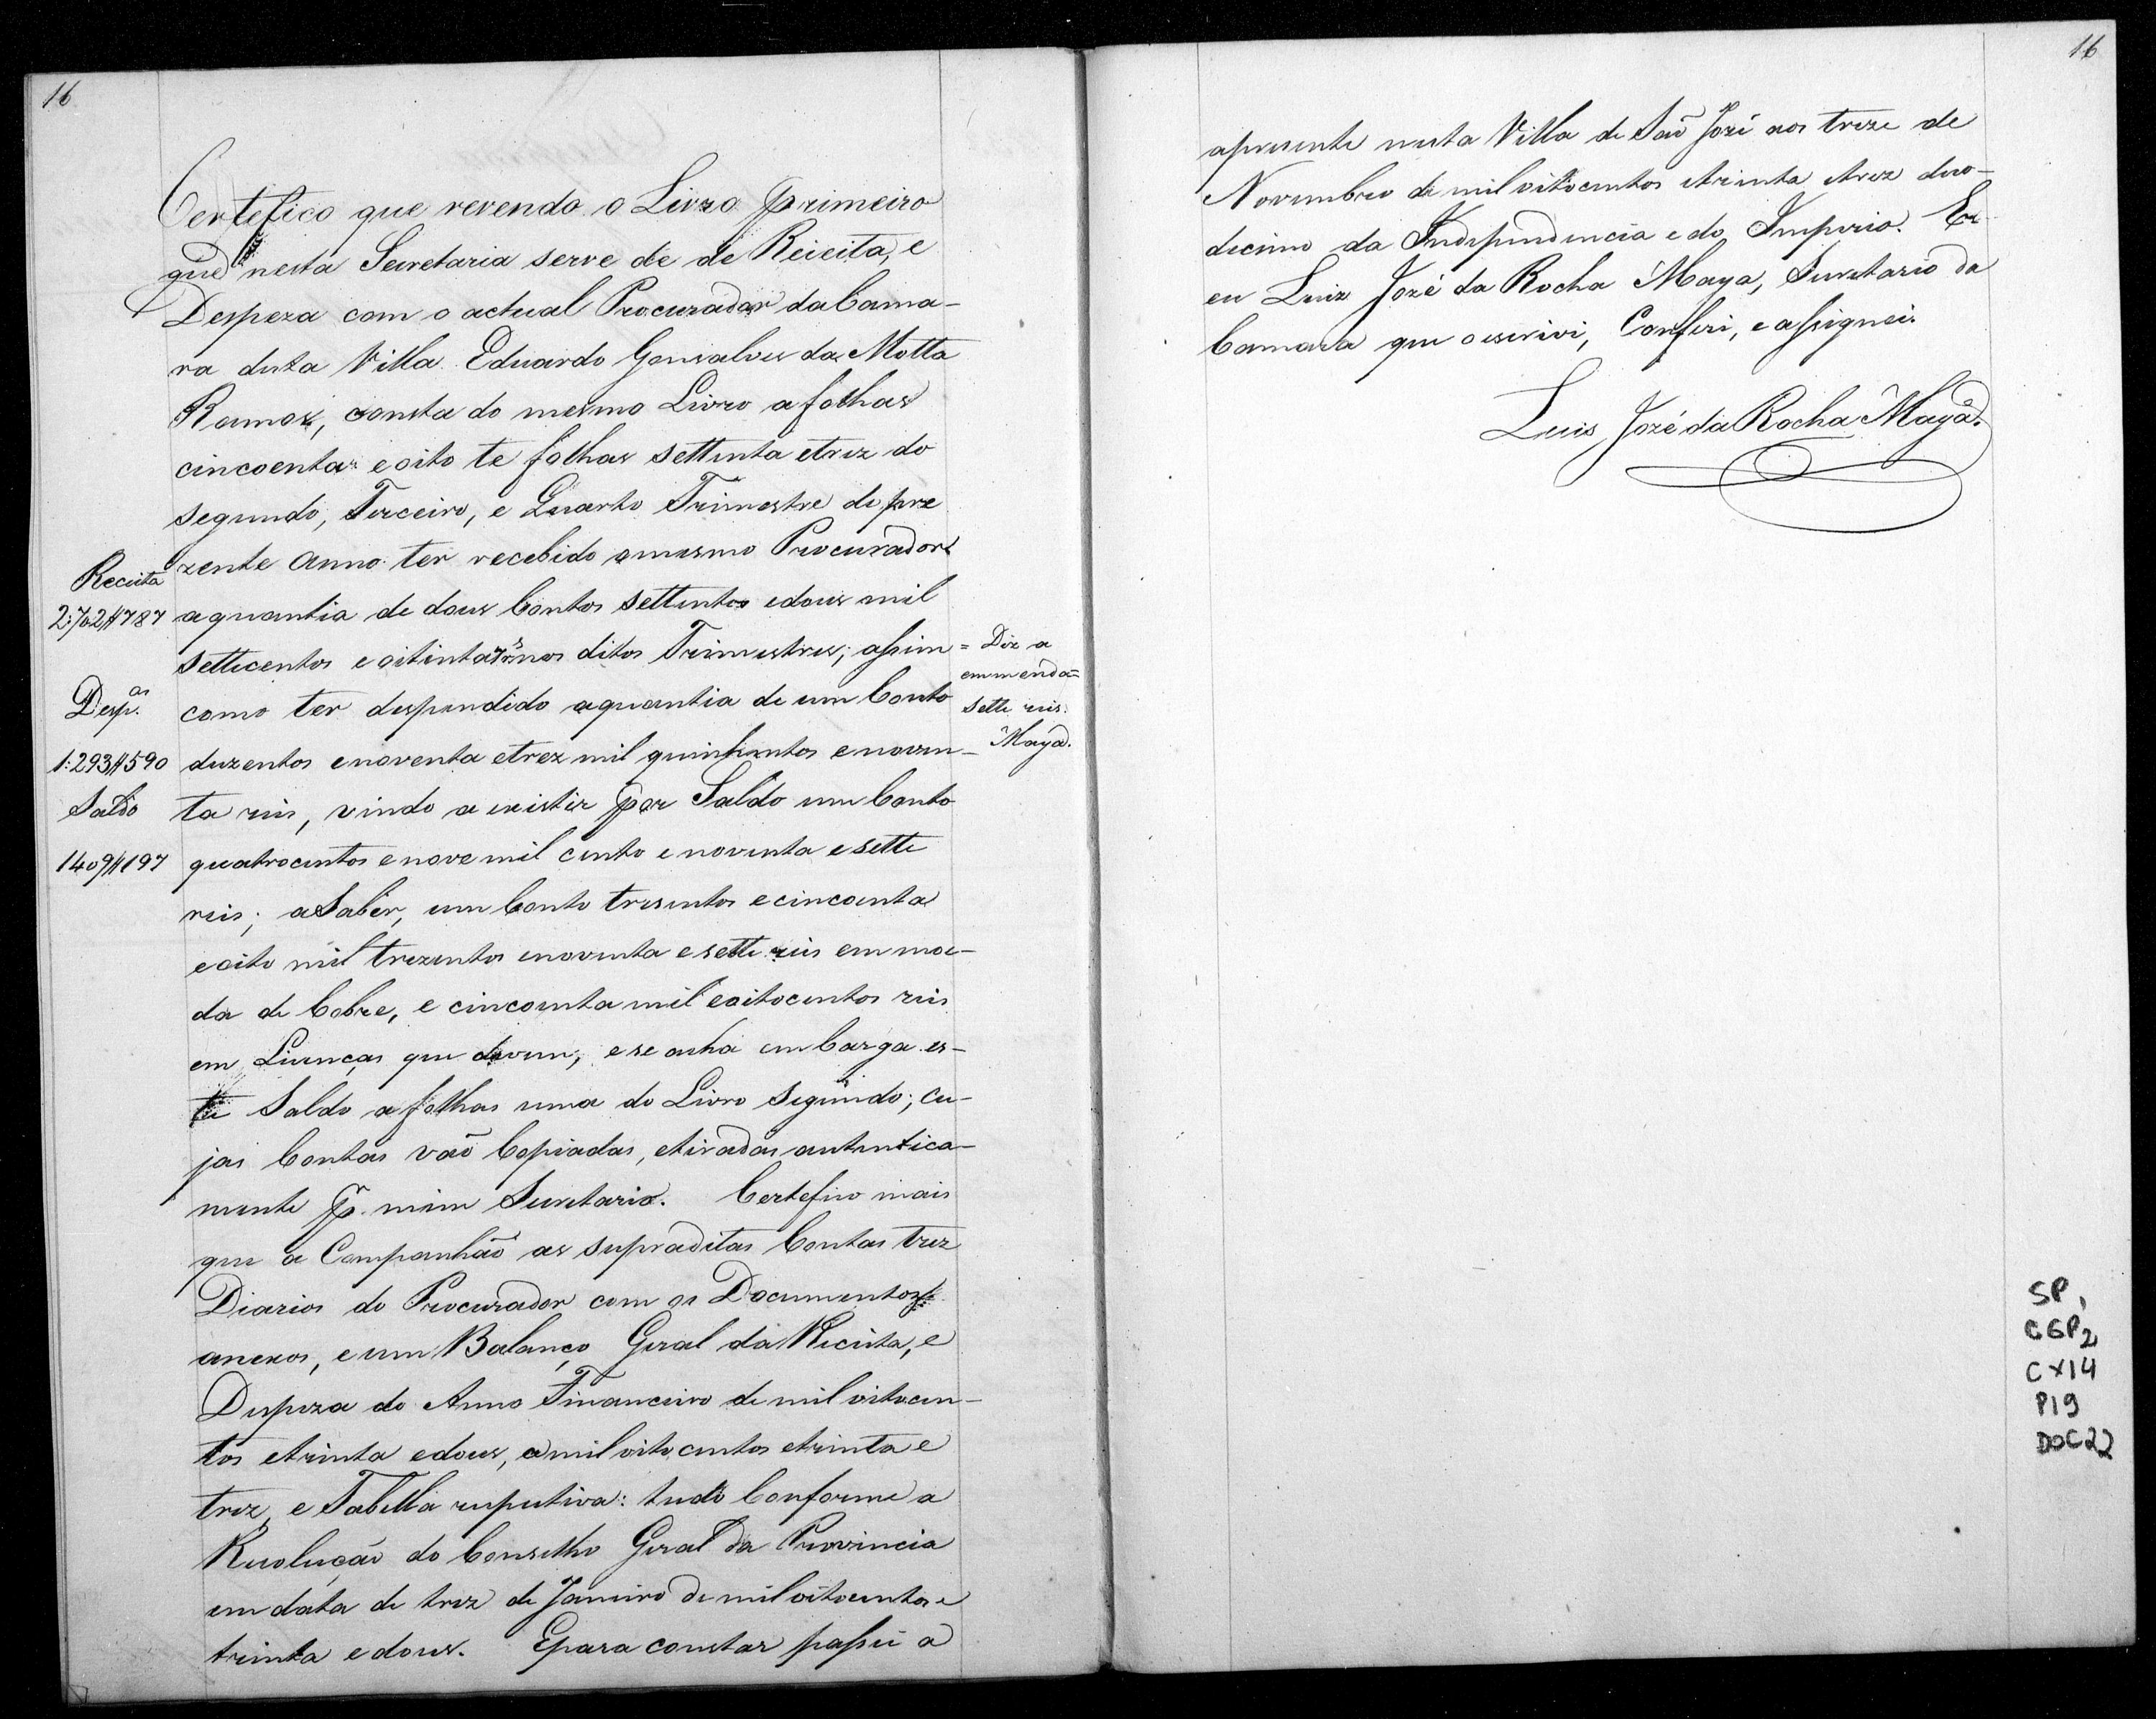 16
Certefico que revendo o Livro primeiro
que nesta Secretaria serve de de Receita, e
Despeza com o actual Procurador da Cama-
ra desta Villa Eduardo Gonsalves da Motta
Ramos, consta do mesmo Livro a folhas
cincoenta e oito te folhas settenta e trez do
segundo, Terceiro, e Quarto Trimestre do pre
zente anno ter recebido o mesmo Procurador
Receita
2:702$787 a quantia de dous Contos settentos e dous mil
settecentos e oitinta nos ditos Trimestres; assim = Diz a
emmenda=
Desp.as como ter despendido a quantia de um Conto sette reis.
1:293$590 duzentos e noventa e trez mil quinhentos e noven- Maya.
Saldo ta reis, vindo a existir por Saldo um Conto
1409$197 quatrocentos e nove mil cento e noventa e sette
reis; a Saber, um Conto tresentos e cincoenta
e oito mil trezentos e noventa e sette reis em moe-
da de Cobre, e cincoenta mil e oitocentos reis
em Licenças que devem; e se acha em Carga es-
te Saldo a folhas uma do Livro segundo; cu-
jas Contas vão Copiadas, e tiradas autentica-
mente pr. mim Secretario. Certefico mais
que a Companhão as supraditas Contas trez
Diarios do Procurador com os Documentos
anexos, e um Balanço Geral da Receita, e
Despeza do Anno Financeiro de mil oitocen-
tos e trinta e dous, a mil oito centos e trinta e
trez, e Tabella respectiva: tudo Conforme a
Resolução do Conselho Geral da Provincia
em data de trez de Janeiro de mil oitocentos e
trinta e dous. E para constar passei a
16
apresente nesta Villa de São Jozé aos treze de
Novembro de mil oitocentos e trinta e trez duo-
decimo da Independencia e do Imperio. Eu
eu Luiz Jozé da Rocha Maya, Secretario da
Camara que o escrivi, Conferi, e assignei.
Luis Jozé da Rocha Maya.
SP1
CGP2
CX14
P19
DOC22